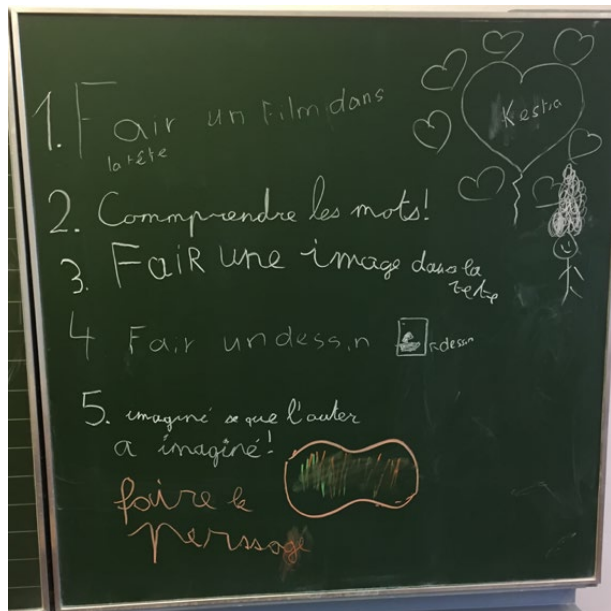 1. Fair un Film dans
la tête
Kestia
2. Commprendre les mots!
3. FaiR une image dans la
tete
4 Fair un dessin
dessin
5. imaginé se que l'auter
a imaginé!
faire le
perssage